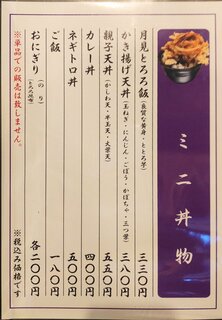 ミニ丼物
月見とろろ飯(良質な黄身・ととろ芋) 三三〇円
かき揚げ天丼(玉ねぎ・にんじん・ごぼう・かぼちゃ・三つ葉) 三八〇円
親子天丼(かしわ天・半玉天・大葉天) 五五〇円
カレー丼 四〇〇円
ネギトロ丼 五〇〇円
ご飯 一八〇円
おにぎり(のり) 各二〇〇円
※単品での販売は致しません。
※税込み価格です